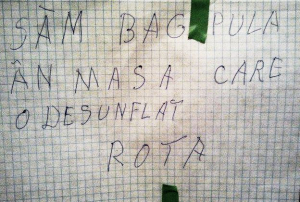 SÀM BAG PULA
ÂN MASA CARE
O DESUNFLAT
ROTA